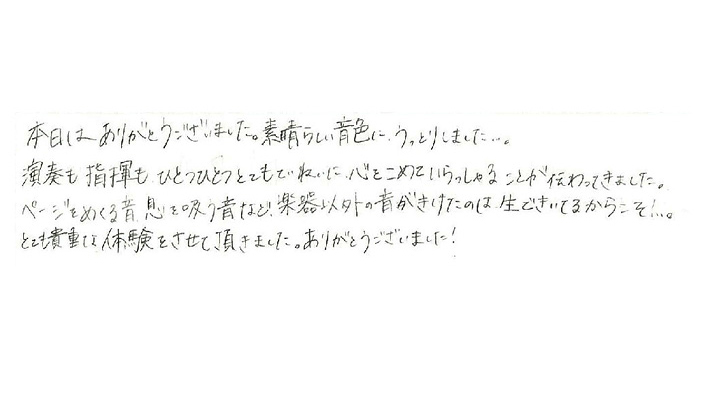 本日は、ありがとうございました。素晴らしい音色に、うっとりしました…。
演奏も指揮も、ひとつひとつとてもていねいに、心をこめていらっしゃることが伝わってきました。
ページをめくる音、息を吸う音など、楽器以外の音がきけたのは、生できいてるからこそ!…。
とても貴重な体験をさせて頂きました。ありがとうございました!